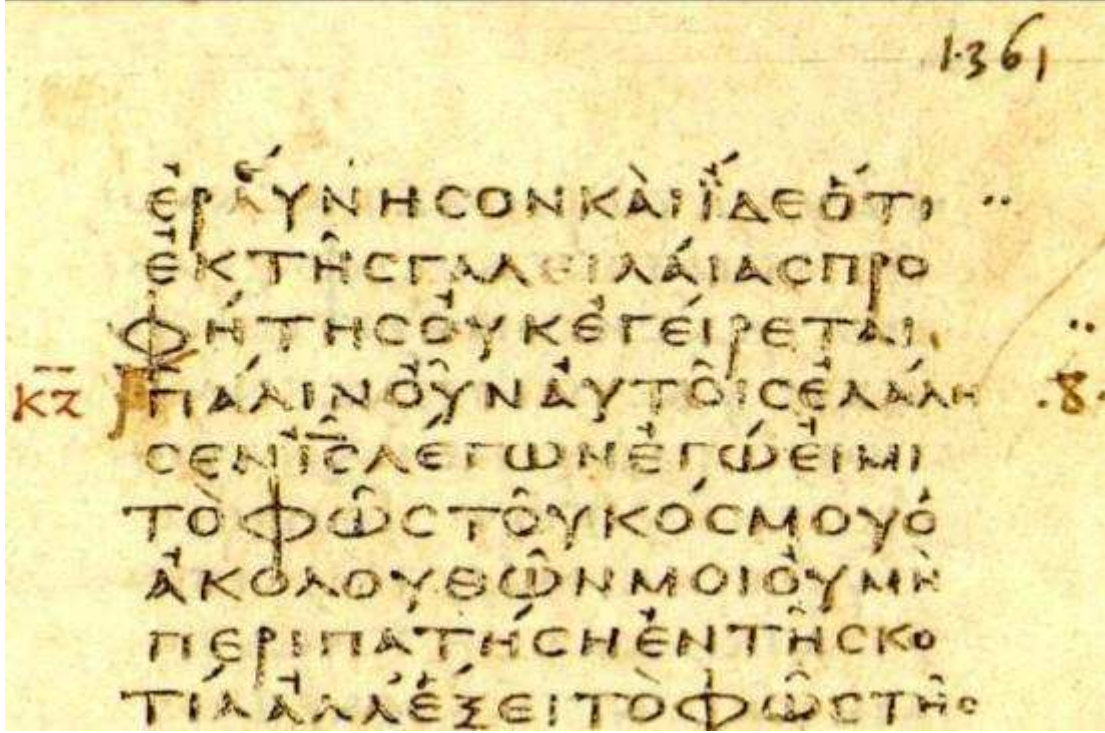 1361
ἐρΑύνΗϹΟΝΚΑὶΪ́ΔΕὍΤΙ
ἘΚΤΗ͂ϹΓΑΛΕΙΛΆΙΑϹΠΡΟ
ΦΉΤΗϹΟΥ̓ΚἘΓΕΊΡΕΤΑΙ
ΚΖ ΠΆΛΙΝΟΥ͂ΝΑΥ̓ΤΟΙ͂ϹἘΛΆΛΗ
ϹΕΝΙ̅Ϲ̅ΛΈΓΩΝἘΓΏἘΙΜΙ
ΤῸΦΩ͂ϹΤΟΥ͂ΚΌϹΜΟΥὉ
ἈΚΟΛΟΥΘΩ͂ΝΜΟΙΟΥ̓ΜῊ
ΠΕΡΙΠΑΤΉϹΗἘΝΤΗ͂ϹΚΟ
ΤΊΑἈΛΛΈΞΕΙΤῸΦΩ͂ϹΤΗ͂Ϲ